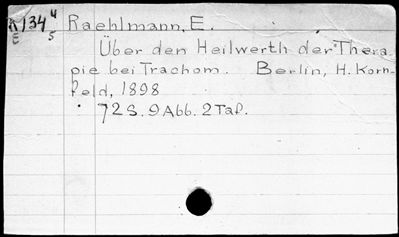 R134 4 Raehlmann, E.
E 5
Über den Heilwerth der Thera
pie bei Trachom. Berlin, H. Korn-
feld, 1898
72 S. 9 Abb. 2 Taf.